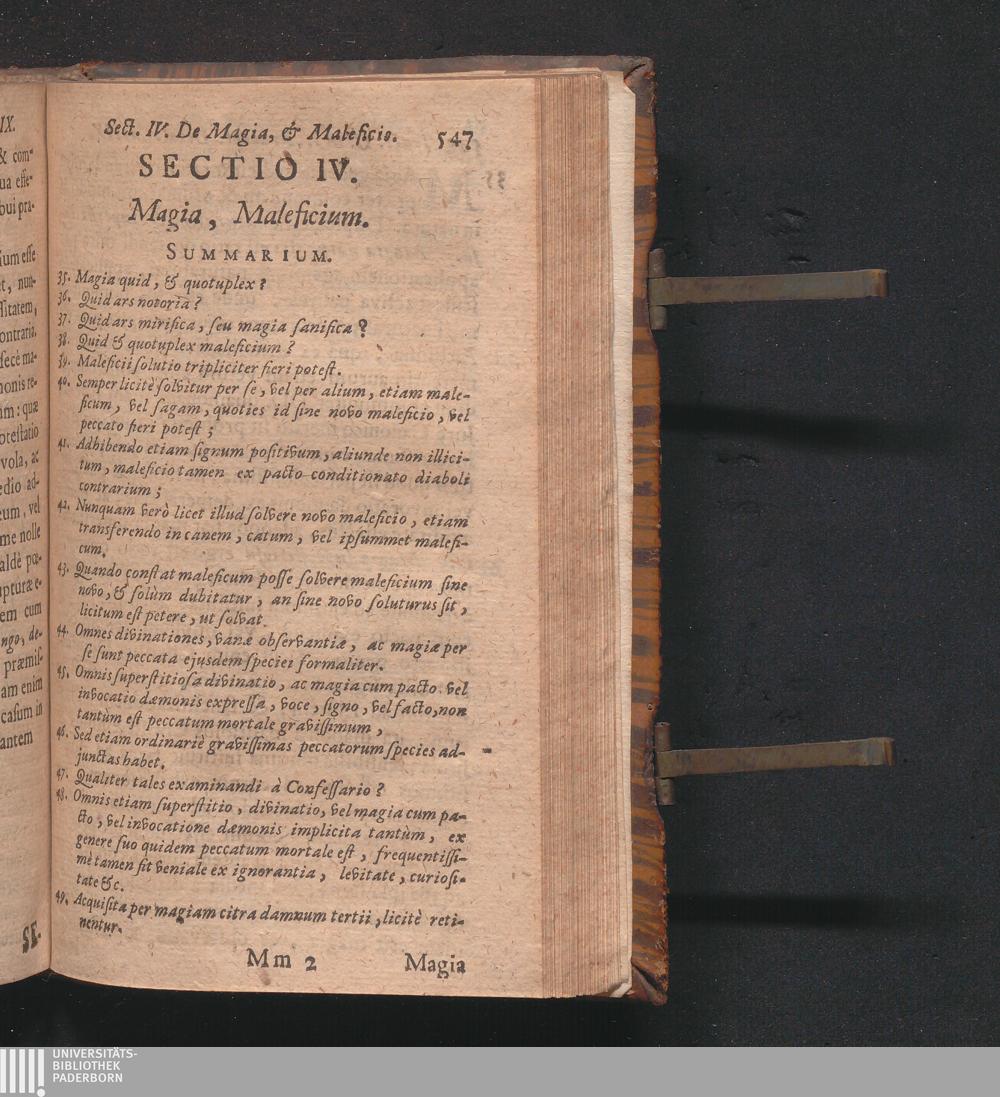 IX.
& com-
ua esse-
bui pra-
ium esse
et, nun-
ssitatem,
ontraria,
fecè ma-
monis re-
um: quæ
otestatio
vola, ac
edio ad-
eum, vel
me nolle
aldè pœ-
upturæ e-
em cum
ngo, de-
præmis-
am enim
casum in
antem
SE-
Sect. IV. De Magia, & Maleficio. 547
SECTIO IV.
Magia, Maleficium.
SUMMARIUM.
35. Magia quid, & quotuplex?
36. Quid ars notoria?
37. Quid ars mirifica, seu magia sanifica?
38. Quid & quotuplex maleficium?
39. Maleficii solutio tripliciter fieri potest.
40. Semper licitè solvitur per se, vel per alium, etiam male-
ficum, vel sagam, quoties id sine novo maleficio, vel
peccato fieri potest;
41. Adhibendo etiam signum positivum, aliunde non illici-
tum, maleficio tamen ex pacto conditionato diaboli
contrarium;
42. Nunquam verò licet illud solvere novo maleficio, etiam
transferendo in canem, catum, vel ipsummet malefi-
cum.
43. Quando constat maleficum posse solvere maleficium sine
novo, & solùm dubitatur, an sine novo soluturus sit,
licitum est petere, ut solvat
44. Omnes divinationes, vanæ observantiæ, ac magiæ per
se sunt peccata ejusdem speciei formaliter.
45. Omnis superstitiosa divinatio, ac magia cum pacto vel
invocatio dæmonis expressa, voce, signo, vel facto, non
tantùm est peccatum mortale gravissimum,
46. Sed etiam ordinariè gravissimas peccatorum species ad-
junctas habet.
47. Qualiter tales examinandi à Confessario?
48. Omnis etiam superstitio, divinatio, vel magia cum pa-
cto, vel invocatione dæmonis implicita tantùm, ex
genere suo quidem peccatum mortale est, frequentissi-
mè tamen fit veniale ex ignorantia, levitate, curiosi-
tate &c.
49. Acquisita per magiam citra damnum tertii, licitè reti-
nentur.
Mm 2 Magia
UNIVERSITÄTS-
BIBLIOTHEK
PADERBORN